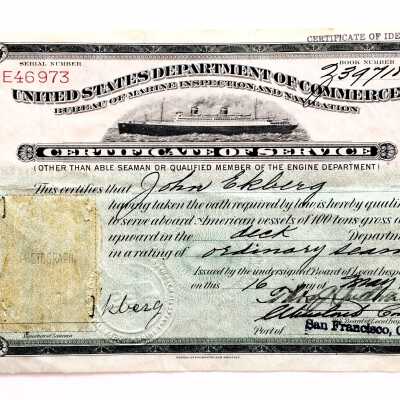 CERTIFICATE OF IDE
SERIAL NUMBER
BOOK NUMBER
E46973
UNITED STATES DEPARTMENT OF COMMERCE
BUREAU OF MARINE INSPECTION AND NAVIGATION
CERTIFICATE OF SERVICE
(OTHER THAN ABLE SEAMAN OR QUALIFIED MEMBER OF THE ENGINE DEPARTMENT)
This certifies that John Ekberg
having taken the oath required by law is hereby quali
to serve aboard American vessels of 100 tons gross a
upward in the deck Depart
in a rating of ordinary seam
Issued by the undersigned Board of Local Inspe
on this 16 day of may
PHOTOGRAPH
Ekberg
Port of San Francisco, C